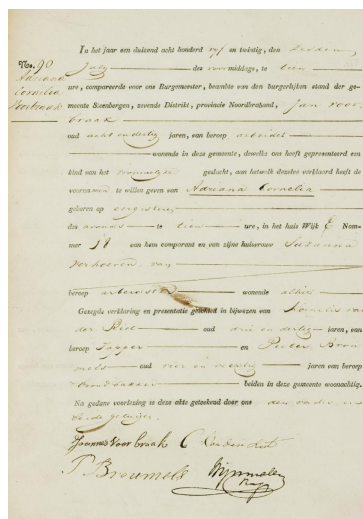 No. 90
Adriana
Cornelia
Voorbraak
In het jaar een duizend acht honderd vyf en twintig, den derden
July des voormiddags, te tien
ure, compareerde voor ons Burgemeester, beambte van den burgerlijken stand der ge-
meente Rosenbergen, zevende Distrikt, provincie Noordbraband, Jan voor
braak
oud acht en dertig jaren, van beroep arbeider
wonende in deze gemeente, dewelke ons heeft gepresenteerd een
kind van het vrouwelyk geslacht, aan hetwelk dezelve verklaard heeft de
voornamen te willen geven van Adriana Cornelia
geboren op eergisteren
des avonds te tien ure, in het huis Wijk E Num-
mer 18 van hem comparant en van zijne huisvrouw Suzanna
Verhoeven, van
beroep arbeidster wonende alhier
Gezegde verklaring en presentatie geschied in bijwezen van Kornelis van
der Riet oud drie en dertig jaren, van
beroep Tapper en Pieter Brou
mels oud vier en veertig jaren van beroep
broodbakker beiden in deze gemeente woonachtig.
Na gedane voorlezing is deze akte geteekend door ons den vader en
beide getuigen.
Joannes Voorbraak C Van den Riet
P. Broumels